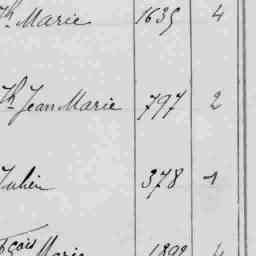 Th Marie 1635 4
Th Jean Marie 797 2
Julien 378 1
çois Marie 1892 4